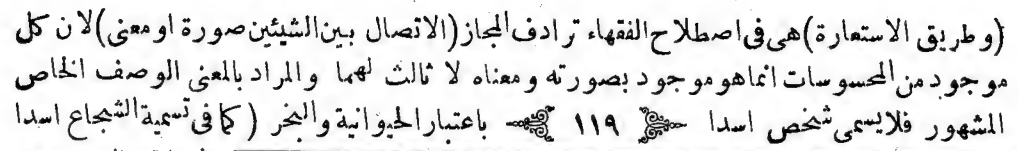 (وطريق الاستعارة) هى فى اصطلاح الفقهاء ترادف المجاز (الاتصال بين الشيئين صورة او معنى) لان كل
موجود من المحسوسات انما هو موجود بصورته ومعناه لا ثالث لهما والمراد بالمعنى الوصف الخاص
المشهور فلا يسمى شخص اسدا ١١٩ باعتبار الحيوانية والبخر (كما فى تسمية الشجاع اسدا